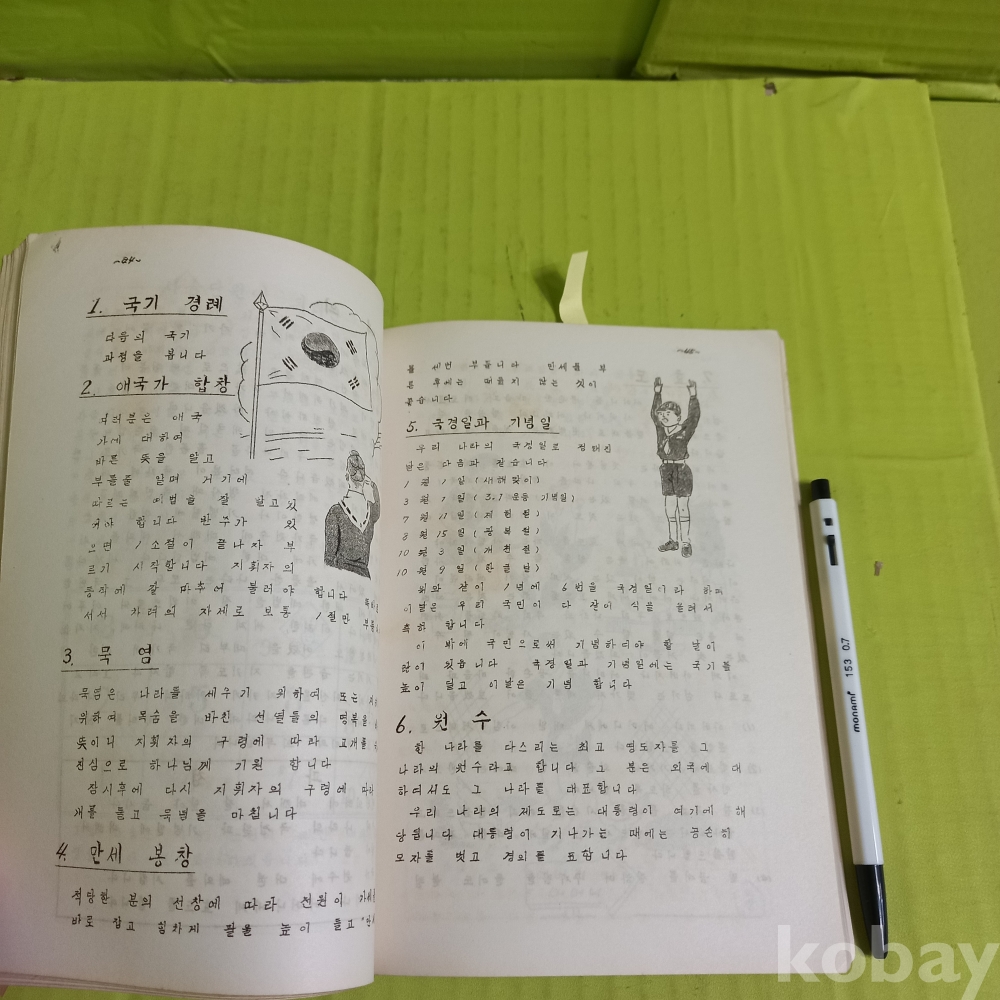 ~64~
1. 국기 경례
다음의 국기
과정을 봅니다
2. 애국가 합창
여러분은 애국
가에 대하여
바른 뜻을 알고
부를줄 알며 거기에
따르는 예법을 잘 알고 있
어야 합니다 반주가 있
으면 1소절이 끝나자 부
르기 시작합니다 지휘자의
동작에 잘 마추어 불러야 합니다
서서 차려의 자세로 보통 1절만
3. 묵 염
묵염은 나라를 세우기 위하여 또는
위하여 목숨을 바친 선열들의 명복을
뜻이니 지휘자의 구령에 따라 고개를
진심으로 하나님께 기원 합니다
잠시후에 다시 지휘자의 구령에 따라
개를 들고 묵념을 마칩니다
4. 만세 봉창
적당한 분의 선창에 따라 전원이
바로 잡고 힘차게 팔을 높이 들고 "만
~65~
를 세번 부릅니다 만세를 부
른 후에는 떠들지 않는 것이
좋습니다
5. 국경일과 기념일
우리 나라의 국경일로 정해진
날은 다음과 같습니다
1 월 1 일 (새해맞이)
3 월 1 일 (3.1 운동 기념일)
7 월 17 일 (제헌절)
8 월 15 일 (광복절)
10 월 3 일 (개천절)
10 월 9 일 (한글날)
위와 같이 1년에 6번을 국경일이라 하며
이날은 우리 국민이 다 같이 식을 올려서
축하 합니다
이 밖에 국민으로써 기념하여야 할 날이
많이 있습니다 국경일과 기념일에는 국기를
높이 달고 이날은 기념 합니다
6. 원 수
한 나라를 다스리는 최고 영도자를 그
나라의 원수라고 합니다 그 분은 외국에 대
하여서도 그 나라를 대표합니다
우리 나라의 제도로는 대통령이 여기에 해
당됩니다 대통령이 지나가는 때에는 공손히
모자를 벗고 경의를 표합니다
monami 153 0.7
kobay